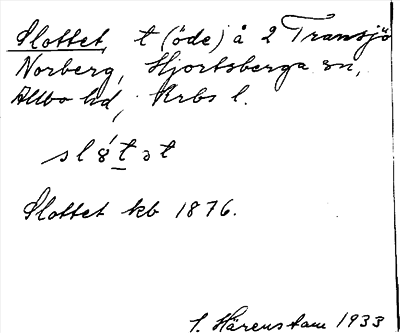 Slottet, t (öde) å 2 Transjö
Norberg, Hjortsberga sn,
Allbo hd, Krbs l.
sl8́t̲ət
Slottet kb 1876.
S. Härenstam 1933